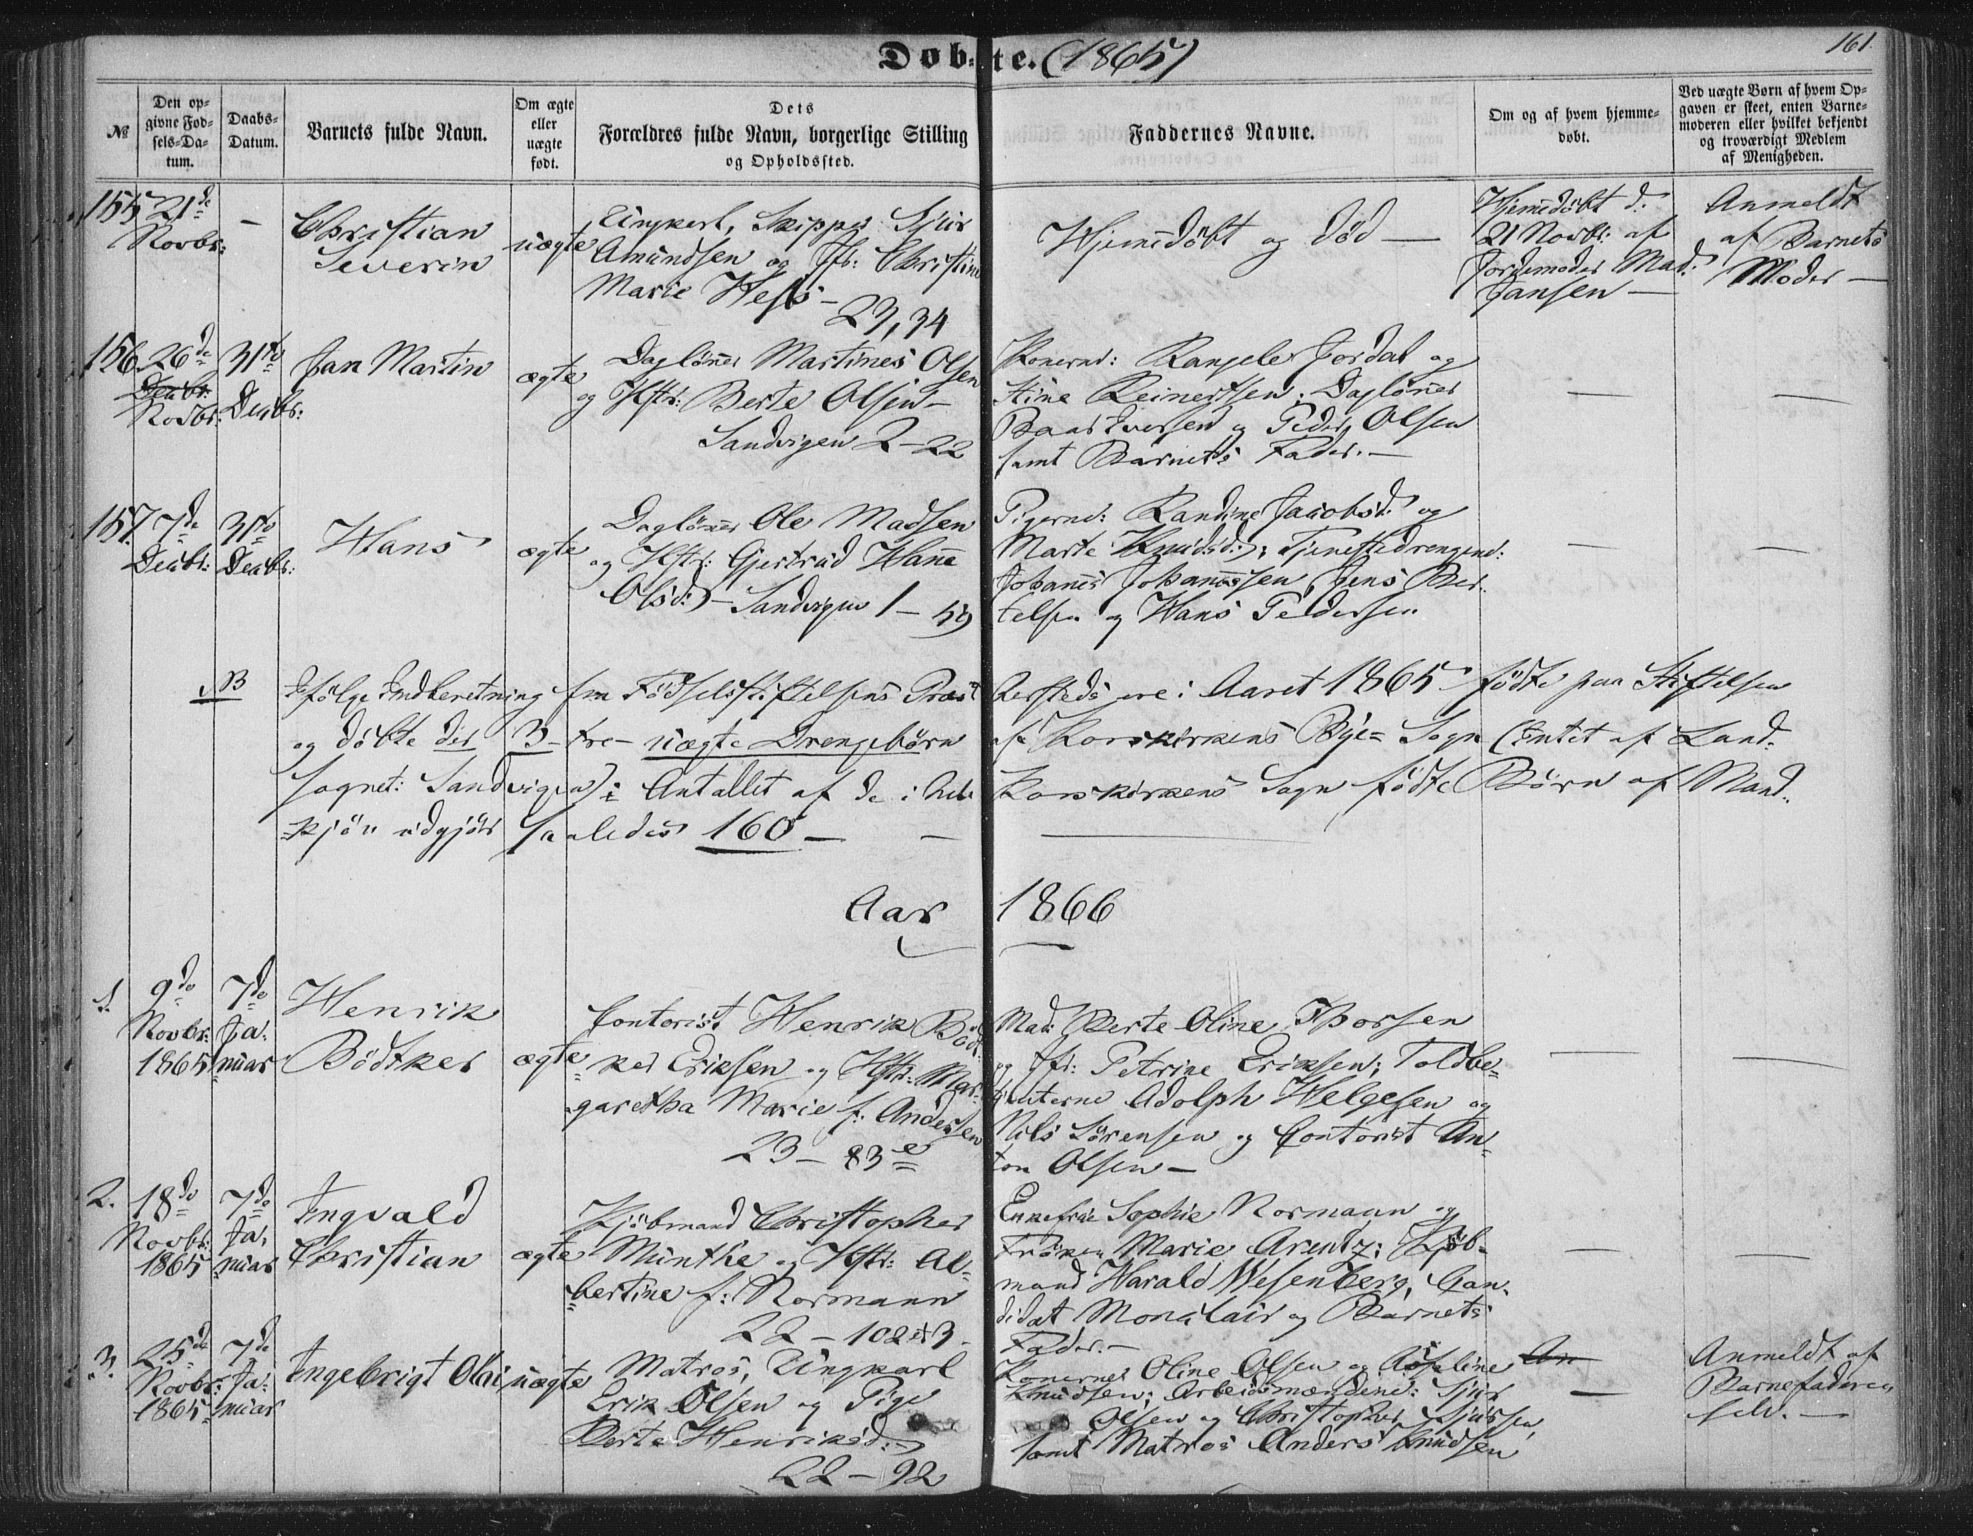 Døb-te. (1865)
161.
№
Den op-
givne Fød-
sels-Da-
tum.
Daabs-
Datum.
Barnets fulde Navn.
Om ægte
eller
uægte
født.
Dets
Forældres fulde Navn, borgerlige Stilling
og Opholdssted.
Faddernes Navne.
Om og af hvem hjemme-
døbt.
Ved uægte Børn af hvem Op-
gaven er skeet, enten Barne-
moderen eller hvilket bekjendt
og troværdigt Medlem
af Menigheden.
155
21de
Novbr:
—
Christian
Severin
uægte
Ungkarl, Skipper Sjur
Amundsen og Jfr: Christine
Marie Hess —
23, 34
Hjemmedøbt og død —
Hjemmedøbt d:
21 Novbr: af
Jordemoder Mad:
Jansen —
Anmeldt
af Barnets
Moder —
156
26de
Decbr:
Novbr:
31te
Decbr:
Jan Martin
ægte
Daglønner Martines Olsen
og Hstr: Berte Olsen —
Sandvigen 2 — 22
Konerne: Jordal og
Stine Reinertsen; Daglønner
Baar Iversen og Peder Olsen
samt Barnets Fader. —
—
—
157.
7de
Decbr:
31te
Decbr:
Hans
ægte
Daglønner Ole Madsen
og Hstr: Gjertrud Hanne
Olsd: — Sandvigen 1 — 59
Pigerne: Randine Jacobsd: og
Marte Knudsd:; Tjenestedrengene:
Johannes Johannessen Jens Ber-
telsen og Hans Pedersen
—
—
NB
Ifølge Indberetning fra Fødselsstiftelsens Præst ere i Aaret 1865 fødte paa Stiftelsen
og døbte der 3 — tre — uægte Drengebørn af Korskirkens Bye-Sogn (Intet af Land-
sognet: Sandvigen); Antallet af de i hele Korskirkens Sogn fødte Børn af Mand-
kjøn udgjør saaledes 160 —
Aar 1866
1.
9de
Novbr:
1865
7de
Ja-
nuar
Henrik
Bødtker
ægte
Contorist Henrik Bødt-
ker Eriksen og Hstr: Mar-
garetha Marie f: Andersen
23 — 83 e
Mad: Berte Oline Thorsen
og Jfr: Petrine Eriksen; Toldbe-
tjenterne Adolph Helgesen og
Nils Sørensen og Contorist An-
ton Olsen —
—
—
2.
18de
Novbr:
1865
7de
Ja-
nuar
Ingvald
Christian
ægte
Kjøbmand Christopher
Münthe og Hstr: Al-
bertine f: Normann
22 — 102 3.
Enkefrue Sophie Normann og
Frøken Marie Arentz; Kjøb-
mand Harald Wesenberg, Can-
didat Monclair og Barnets
Fader. —
—
—
3.
25de
Novbr:
1865
7de
Ja-
nuar
Ingebrigt Olai
uægte
Matros, Ungkarl
Erik Olsen og Pige
Berte Henriksd: —
22 — 92
Konerne Oline Olsen og
Knudsen; Arbeidsmændene: Sjur
Olsen og Christopher Sjursen,
samt Matros Anders Knudsen
An
—
Anmeldt af
Barnefaderen
selv. —